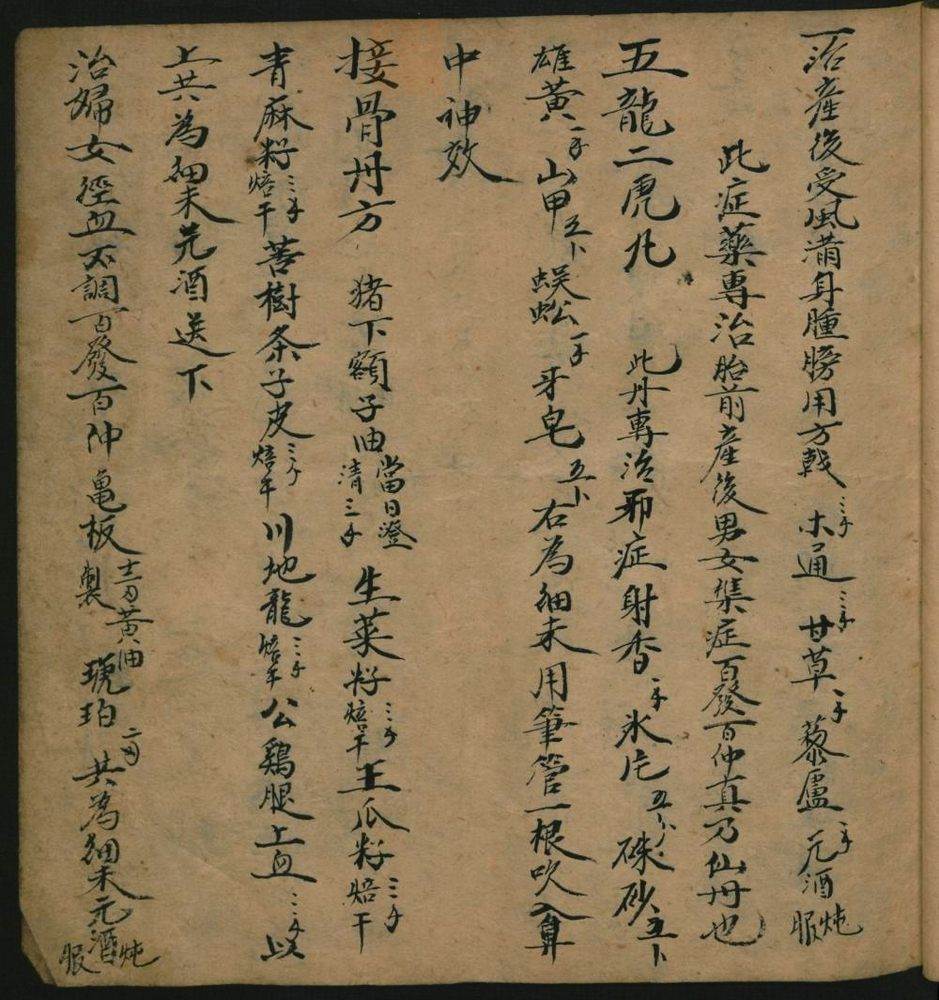 一治產後受風滿身腫膀用方戟三千木通三千甘草一千藜盧一千元酒炖服
此症薬專治胎前產後男女集症百發百仲真乃仙丹也
五龍二虎凡 此丹專治邪症射香一千氷片五卜硃砂五卜
雄黃一千山甲五卜蜈蚣一千牙皂五卜右為細末用筆管一根吹入鼻
中神效
接骨丹方 猪下額子油當日澄清三千生菜籽三千焙干王瓜籽三千焙干
青麻籽三千焙干菩樹条子皮三千焙干川地龍三千焙干公鷄腿上血三千以
上共為細末元酒送下
治婦女徑血不調百發百仲龜板黃油製琥珀二刄共為細末元酒炖服